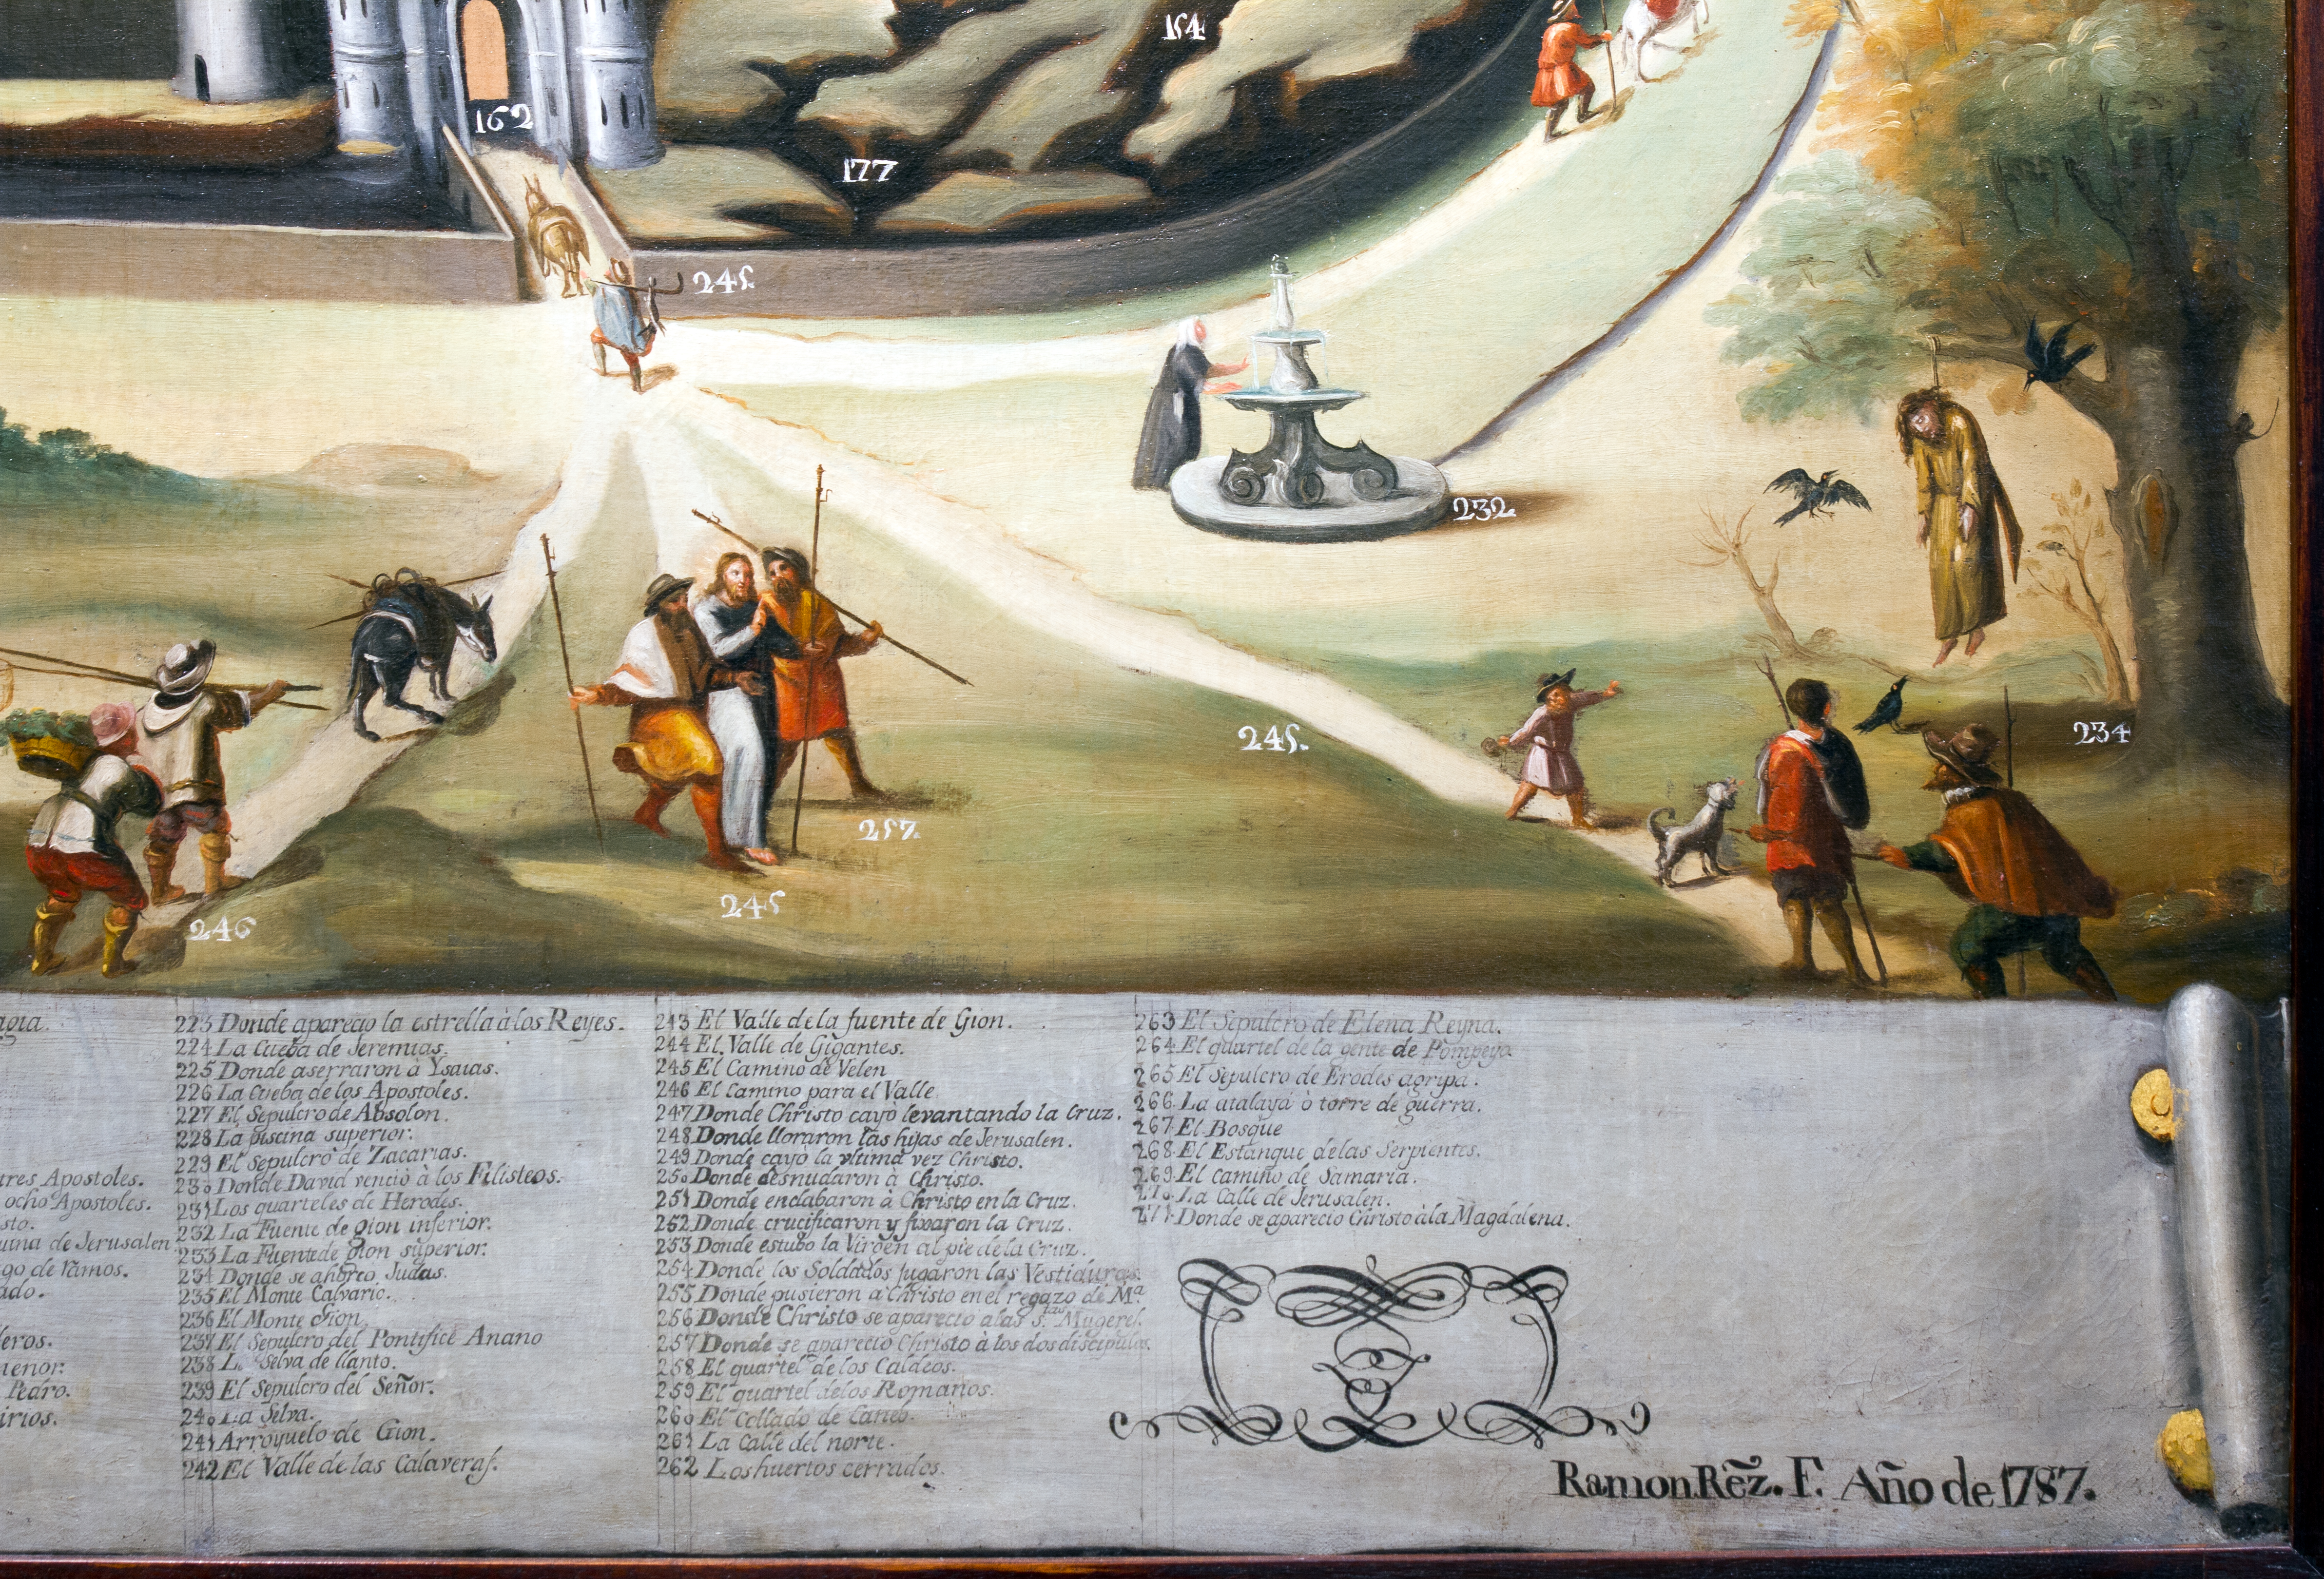 154
162
177
245.
232.
245.
234
257.
245
246
agia.
tres Apostoles.
ocho Apostoles.
sto.
uina de Jerusalen
go de ramos.
ado.
leros.
menor.
Pedro.
irios.
223 Donde aparecio la estrella à los Reyes.
224 La Cueba de Jeremias.
225 Donde aserraron à Ysaias.
226 La Cueba de los Apostoles.
227 El Sepulcro de Absolon.
228 La piscina superior.
229 El Sepulcro de Zacarias.
230 Donde David venciò à los Filisteos.
231 Los quarteles de Herodes.
232 La Fuente de gion inferior.
233 La Fuente de gion superior.
234 Donde se ahorco Judas.
235 El Monte Calvario.
236 El Monte Gion.
237 El Sepulcro del Pontifice Anano
238 La Selva de llanto.
239 El Sepulcro del Señor.
240 La Selva.
241 Arroyuelo de Gion.
242 El Valle de las Calaveras.
243 El Valle de la fuente de Gion.
244 El Valle de Gigantes.
245 El Camino de Velen
246 El Camino para el Valle
247 Donde Christo cayò levantando la Cruz.
248 Donde lloraron las hijas de Jerusalen.
249 Donde cayò la vltima vez Christo.
250 Donde desnudaron à Christo.
251 Donde enclabaron à Christo en la Cruz.
252 Donde crucificaron y fixaron la Cruz.
253 Donde estubo la Virgen al pie de la Cruz.
254 Donde los Soldados jugaron las Vestiduras.
255 Donde pusieron a Christo en el regazo de Mª
256 Donde Christo se apareciò a las Stas Mugeres.
257 Donde se apareciò Christo à los dos discipulos.
258 El quartel de los Caldeos.
259 El quartel de los Romanos.
260 El Collado de Caneb.
261 La Calle del norte.
262 Los huertos cerrados.
263 El Sepulcro de Elena Reyna.
264 El quartel de la gente de Pompeyo.
265 El Sepulcro de Erodes agripa.
266 La atalaya ò torre de guerra.
267 El Bosque
268 El Estanque de las Serpientes.
269 El camino de Samaria.
270 La Calle de Jerusalen.
271 Donde se apareciò Christo à la Magdalena.
Ramon Rẽz. F. Año de 1787.